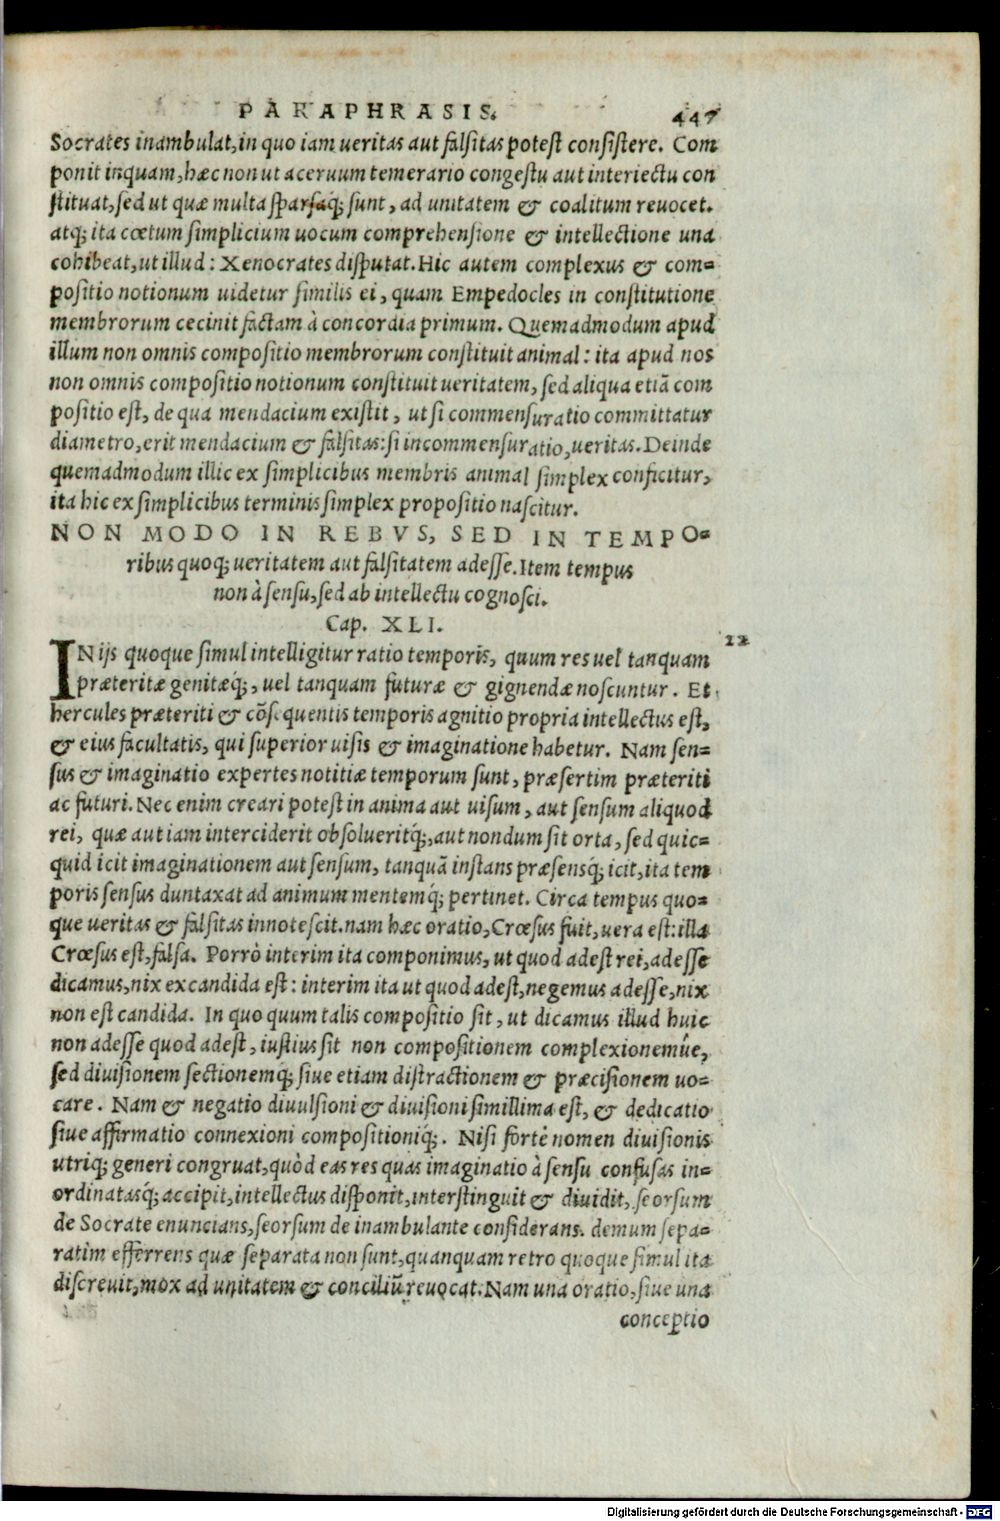 PARAPHRASIS. 447
Socrates inambulat, in quo iam ueritas aut falsitas potest consistere. Com
ponit inquam, hæc non ut aceruum temerario congestu aut interiectu con
stituat, sed ut quæ multa sparsaq; sunt, ad unitatem & coalitum reuocet.
atq; ita cœtum simplicium uocum comprehensione & intellectione una
cohibeat, ut illud: Xenocrates disputat. Hic autem complexus & com=
positio notionum uidetur similis ei, quam Empedocles in constitutione
membrorum cecinit factam à concordia primum. Quemadmodum apud
illum non omnis compositio membrorum constituit animal: ita apud nos
non omnis compositio notionum constituit ueritatem, sed aliqua etiã com
positio est, de qua mendacium existit, ut si commensuratio committatur
diametro, erit mendacium & falsitas: si incommensuratio, ueritas. Deinde
quemadmodum illic ex simplicibus membris animal simplex conficitur,
ita hic ex simplicibus terminis simplex propositio nascitur.
NON MODO IN REBVS, SED IN TEMPO=
ribus quoq; ueritatem aut falsitatem adesse. Item tempus
non à sensu, sed ab intellectu cognosci.
Cap. XLI.
22
INijs quoque simul intelligitur ratio temporis, quum res uel tanquam
præteritæ genitæq;, uel tanquam futuræ & gignendæ noscuntur. Et
hercules præteriti & cõsequentis temporis agnitio propria intellectus est,
& eius facultatis, qui superior uisis & imaginatione habetur. Nam sen=
sus & imaginatio expertes notitiæ temporum sunt, præsertim præteriti
ac futuri. Nec enim creari potest in anima aut uisum, aut sensum aliquod
rei, quæ aut iam interciderit obsoluerítq;, aut nondum sit orta, sed quic=
quid icit imaginationem aut sensum, tanquã instans præsensq́; icit, ita tem
poris sensus duntaxat ad animum mentemq́; pertinet. Circa tempus quo=
que ueritas & falsitas innotescit. nam hæc oratio, Crœsus fuit, uera est: illa
Crœsus est, falsa. Porrò interim ita componimus, ut quod adest rei, adesse
dicamus, nix excandida est: interim ita ut quod adest, negemus adesse, nix
non est candida. In quo quum talis compositio sit, ut dicamus illud huic
non adesse quod adest, iustius sit non compositionem complexionemúe,
sed diuisionem sectionemq́; siue etiam distractionem & præcisionem uo=
care. Nam & negatio diuulsioni & diuisioni simillima est, & dedicatio
siue affirmatio connexioni compositioniq́;. Nisi fortè nomen diuisionis
utriq; generi congruat, quòd eas res quas imaginatio à sensu confusas in=
ordinatasq́; accipit, intellectus disponit, interstinguit & diuidit, seorsum
de Socrate enuncians, seorsum de inambulante considerans. demum sepa=
ratim efferrens quæ separata non sunt, quanquam retro quoque simul ita
discreuit, mox ad unitatem & conciliũ reuocat. Nam una oratio, siue una
conceptio
Digitalisierung gefördert durch die Deutsche Forschungsgemeinschaft - DFG